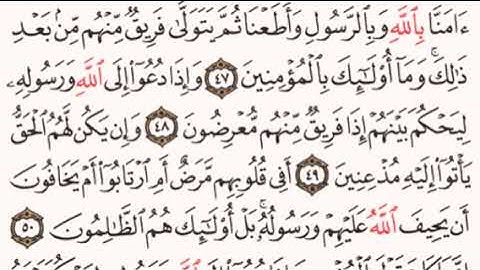 ءَامَنَّا بِٱللَّهِ وَبِٱلرَّسُولِ وَأَطَعْنَا ثُمَّ يَتَوَلَّىٰ فَرِيقٌ مِّنْهُم مِّنۢ بَعْدِ
ذَٰلِكَۚ وَمَآ أُو۟لَٰٓئِكَ بِٱلْمُؤْمِنِينَ ٤٧ وَإِذَا دُعُوٓا۟ إِلَى ٱللَّهِ وَرَسُولِهِۦ
لِيَحْكُمَ بَيْنَهُمْ إِذَا فَرِيقٌ مِّنْهُم مُّعْرِضُونَ ٤٨ وَإِن يَكُن لَّهُمُ ٱلْحَقُّ
يَأْتُوٓا۟ إِلَيْهِ مُذْعِنِينَ ٤٩ أَفِى قُلُوبِهِم مَّرَضٌ أَمِ ٱرْتَابُوٓا۟ أَمْ يَخَافُونَ
أَن يَحِيفَ ٱللَّهُ عَلَيْهِمْ وَرَسُولُهُۥۚ بَلْ أُو۟لَٰٓئِكَ هُمُ ٱلظَّٰلِمُونَ ٥٠